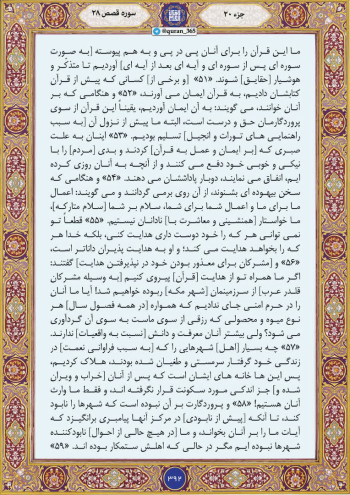 جزء ۲۰
سوره قصص ۲۸
@quran_365
ما این قرآن را برای آنان پی در پی و به هم پیوسته [به صورت
سوره ای پس از سوره ای و آیه ای بعد از آیه ای] آوردیم تا متذکّر و
هوشیار [حقایق] شوند. «۵۱» [و برخی از] کسانی که پیش از قرآن
کتابشان دادیم، به قرآن ایمان می آورند، «۵۲» و هنگامی که بر
آنان خوانند، می گویند: به آن ایمان آوردیم، یقیناً این قرآن از سوی
پروردگارمان حق و درست است، البته ما پیش از نزول آن [به سبب
راهنمایی های تورات و انجیل] تسلیم بودیم. «۵۳» اینان به علت
صبری که [بر ایمان و عمل به قرآن] کردند و بدی [مردم] را با
نیکی و خوبی خود دفع می کنند و از آنچه به آنان روزی کرده
ایم، انفاق می نمایند، دوبار پاداششان می دهند. «۵۴» و هنگامی که
سخن بیهوده ای بشنوند، از آن روی برمی گردانند و می گویند: اعمال
ما برای ما و اعمال شما برای شما، سلام بر شما [سلام متارکه]،
ما خواستار [همنشینی و معاشرت با] نادانان نیستیم. «۵۵» قطعاً تو
نمی توانی هر که را خود دوست داری هدایت کنی، بلکه خدا هر
که را بخواهد هدایت می کند؛ و او به هدایت پذیران داناتر است،
«۵۶» و [مشرکان برای معذور بودن خود در نپذیرفتن هدایت] گفتند:
اگر ما همراه تو از هدایت [قرآن] پیروی کنیم [به وسیله مشرکان
قلدر عرب] از سرزمینمان [شهر مکه] ربوده خواهیم شد! آیا ما آنان
را در حرم امنی جای ندادیم که همواره [در همه فصول سال] هر
نوع میوه و محصولی که رزقی از سوی ماست به سوی آن گردآوری
می شود؟ ولی بیشتر آنان معرفت و دانش [نسبت به واقعیات] ندارند.
«۵۷» چه بسیار [اهل] شهرهایی را که [به سبب فراوانی نعمت] در
زندگی خود گرفتار سرمستی و طغیان شده بودند، هلاک کردیم،
پس این ها خانه های ایشان است که پس از آنان [خراب و ویران
شده و] جز اندکی مورد سکونت قرار نگرفته اند، و فقط ما وارث
آنان هستیم! «۵۸» و پروردگارت بر آن نبوده است که شهرها را نابود
کند، تا آنکه [پیش از نابودی] در مرکز آنها پیامبری برانگیزد که
آیات ما را بر آنان بخواند، و ما [در هیچ حالی از احوال] نابودکننده
شهرها نبوده ایم مگر در حالی که اهلش ستمکار بوده اند. «۵۹»
۳۹۲